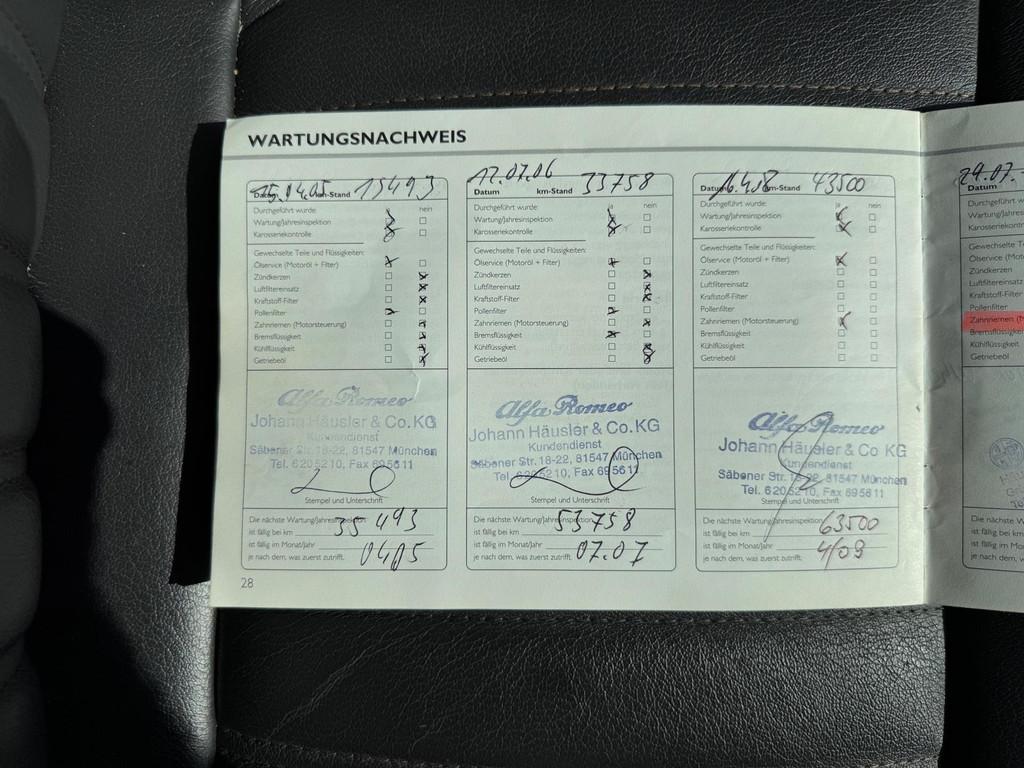 WARTUNGSNACHWEIS
15.04.05 15493
Datum km-Stand
Durchgeführt wurde: ja nein
Wartung/Jahresinspektion
Karosseriekontrolle
Gewechselte Teile und Flüssigkeiten:
Ölservice (Motoröl + Filter)
Zündkerzen
Luftfiltereinsatz
Kraftstoff-Filter
Pollenfilter
Zahnriemen (Motorsteuerung)
Bremsflüssigkeit
Kühlflüssigkeit
Getriebeöl
Alfa Romeo
Johann Häusler & Co. KG
Kundendienst
Säbener Str. 18-22, 81547 München
Tel. 6205210, Fax 695611
Stempel und Unterschrift
Die nächste Wartung/Jahresinspektion
ist fällig bei km 35493
ist fällig im Monat/Jahr 0405
je nach dem, was zuerst zutrifft.
28
17.07.06 33758
Datum km-Stand
Durchgeführt wurde: ja nein
Wartung/Jahresinspektion
Karosseriekontrolle
Gewechselte Teile und Flüssigkeiten:
Ölservice (Motoröl + Filter)
Zündkerzen
Luftfiltereinsatz
Kraftstoff-Filter
Pollenfilter
Zahnriemen (Motorsteuerung)
Bremsflüssigkeit
Kühlflüssigkeit
Getriebeöl
Alfa Romeo
Johann Häusler & Co. KG
Kundendienst
Säbener Str. 18-22, 81547 München
Tel. 6205210, Fax 695611
Stempel und Unterschrift
Die nächste Wartung/Jahresinspektion
ist fällig bei km 53758
ist fällig im Monat/Jahr 07.07
je nach dem, was zuerst zutrifft.
43500
Datum km-Stand
Durchgeführt wurde: ja nein
Wartung/Jahresinspektion
Karosseriekontrolle
Gewechselte Teile und Flüssigkeiten:
Ölservice (Motoröl + Filter)
Zündkerzen
Luftfiltereinsatz
Kraftstoff-Filter
Pollenfilter
Zahnriemen (Motorsteuerung)
Bremsflüssigkeit
Kühlflüssigkeit
Getriebeöl
Alfa Romeo
Johann Häusler & Co KG
Kundendienst
Säbener Str. 18-22, 81547 München
Tel. 6205210, Fax 695611
Stempel und Unterschrift
Die nächste Wartung/Jahresinspektion
ist fällig bei km 63500
ist fällig im Monat/Jahr 4/09
je nach dem, was zuerst zutrifft.
29.07.
Datum
Durchgeführt w
Wartung/Jahres
Karosseriekont
Gewechselte Te
Ölservice (Moto
Zündkerzen
Luftfiltereinsatz
Kraftstoff-Filter
Pollenfilter
Zahnriemen (M
Bremsflüssigkeit
Kühlflüssigkeit
Getriebeöl
Die nächste Wart
ist fällig bei km
ist fällig im Monat
je nach dem, was